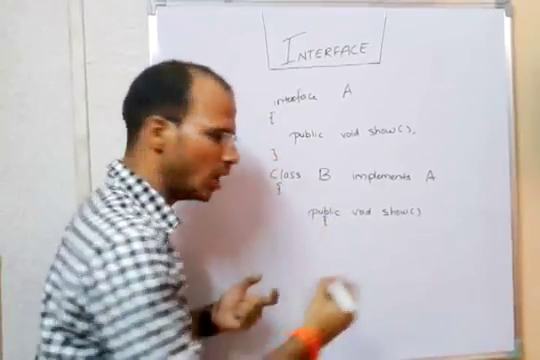 INTERFACE
interface A
{
public void show();
}
Class B implements A
{
public void show()
{